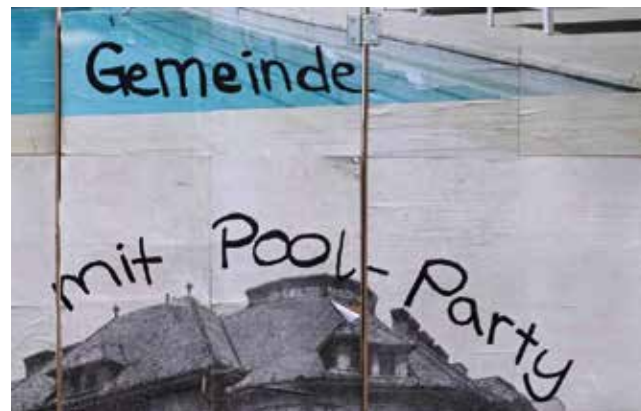 Gemeinde
mit Pool-Party